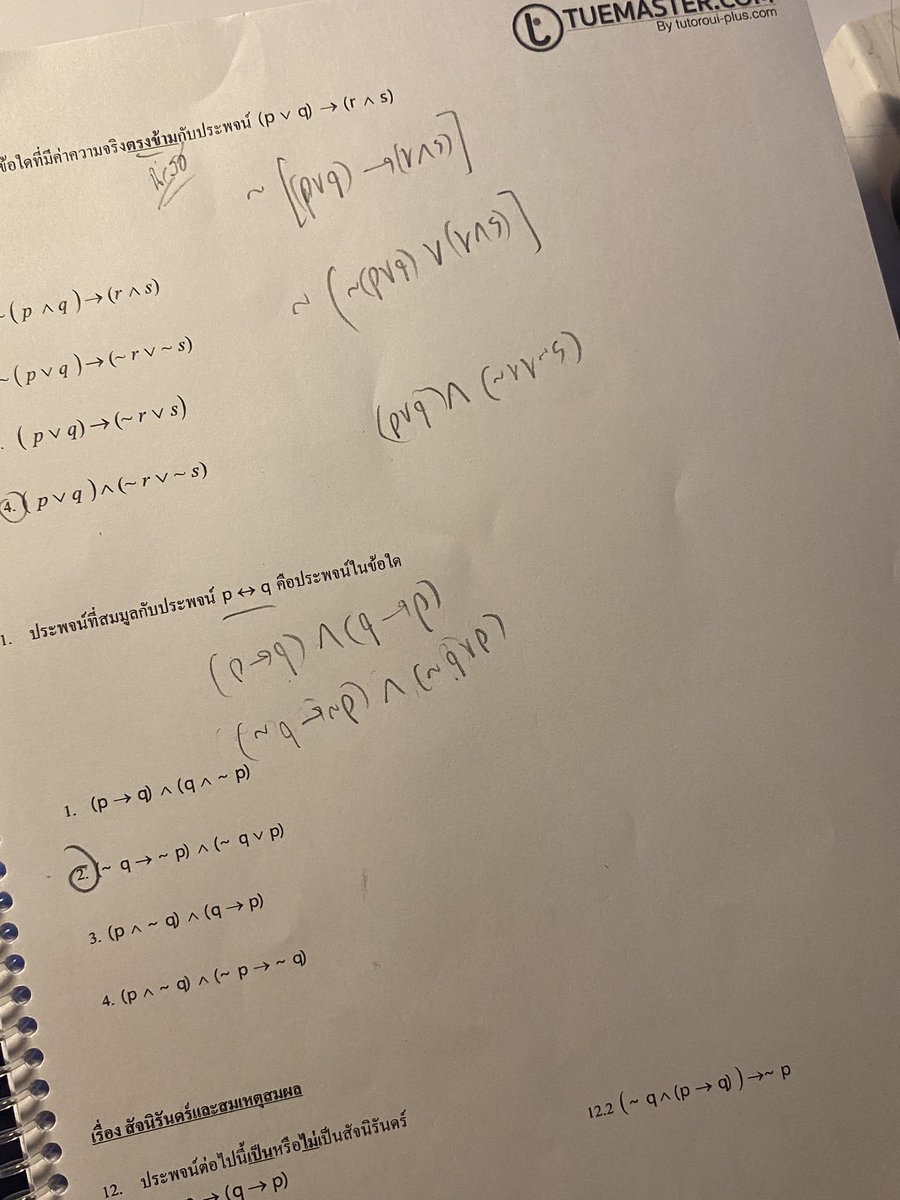 TUEMASTER.COM
By tutoroui-plus.com
ข้อใดที่มีค่าความจริงตรงข้ามกับประพจน์ (p ∨ q) → (r ∧ s)
นิเสธ
~ [(p∨q) → (r∧s)]
~ (~(p∨q) ∨ (r∧s)]
(p∨q) ∧ (~r∨~s)
~(p ∧ q)→(r ∧ s)
~(p ∨ q)→(~ r ∨ ~ s)
. (p ∨ q)→(~ r ∨ s)
4. (p ∨ q)∧(~ r ∨ ~ s)
1. ประพจน์ที่สมมูลกับประพจน์ p ↔ q คือประพจน์ในข้อใด
(p→q) ∧ (q→p)
(~q→~p) ∧ (~q∨p)
1. (p → q) ∧ (q ∧ ~ p)
2. (~ q → ~ p) ∧ (~ q ∨ p)
3. (p ∧ ~ q) ∧ (q → p)
4. (p ∧ ~ q) ∧ (~ p → ~ q)
เรื่อง สัจนิรันดร์และสมเหตุสมผล
12. ประพจน์ต่อไปนี้เป็นหรือไม่เป็นสัจนิรันดร์
→ (q → p)
12.2 (~ q ∧ (p → q) ) →~ p